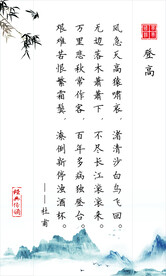 登高
风急天高猿啸哀，渚清沙白鸟飞回。
无边落木萧萧下，不尽长江滚滚来。
万里悲秋常作客，百年多病独登台。
艰难苦恨繁霜鬓，潦倒新停浊酒杯。
——杜甫